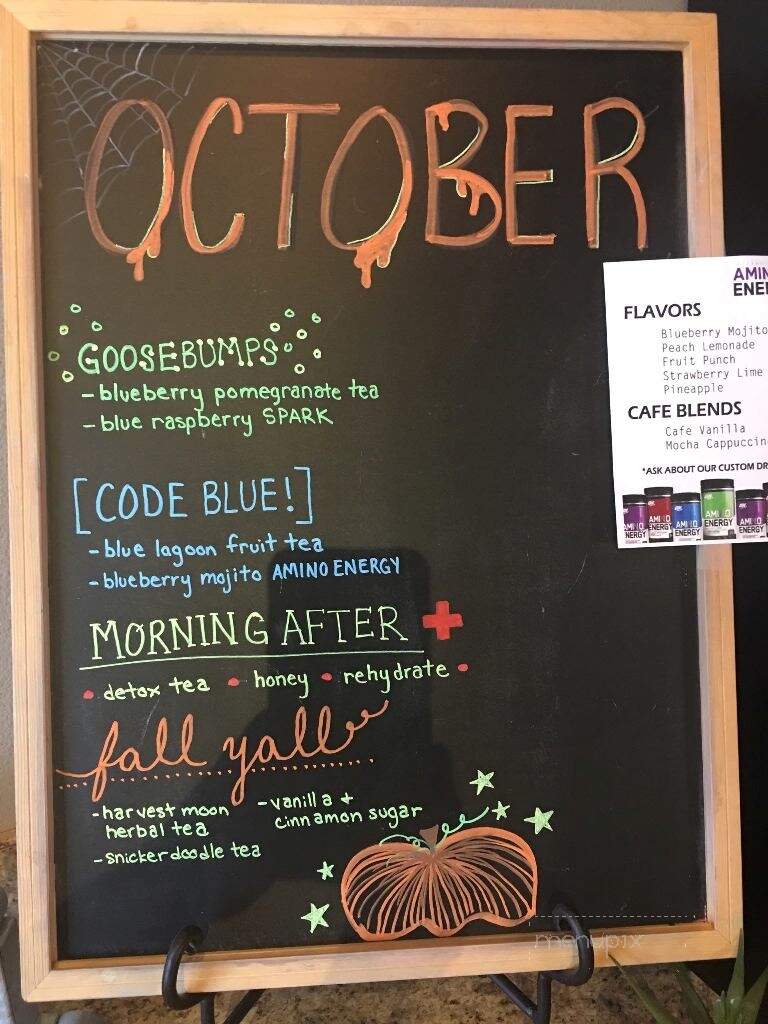 OCTOBER
GOOSEBUMPS
- blueberry pomegranate tea
- blue raspberry SPARK
[CODE BLUE!]
- blue lagoon fruit tea
- blueberry mojito AMINO ENERGY
MORNING AFTER +
• detox tea • honey • rehydrate •
fall yall
- harvest moon
herbal tea
- snickerdoodle tea
- vanilla +
cinnamon sugar
AMIN
ENER
FLAVORS
Blueberry Mojito
Peach Lemonade
Fruit Punch
Strawberry Lime
Pineapple
CAFE BLENDS
Cafe Vanilla
Mocha Cappuccin
*ASK ABOUT OUR CUSTOM DR
AMINO
ENERGY
menupix